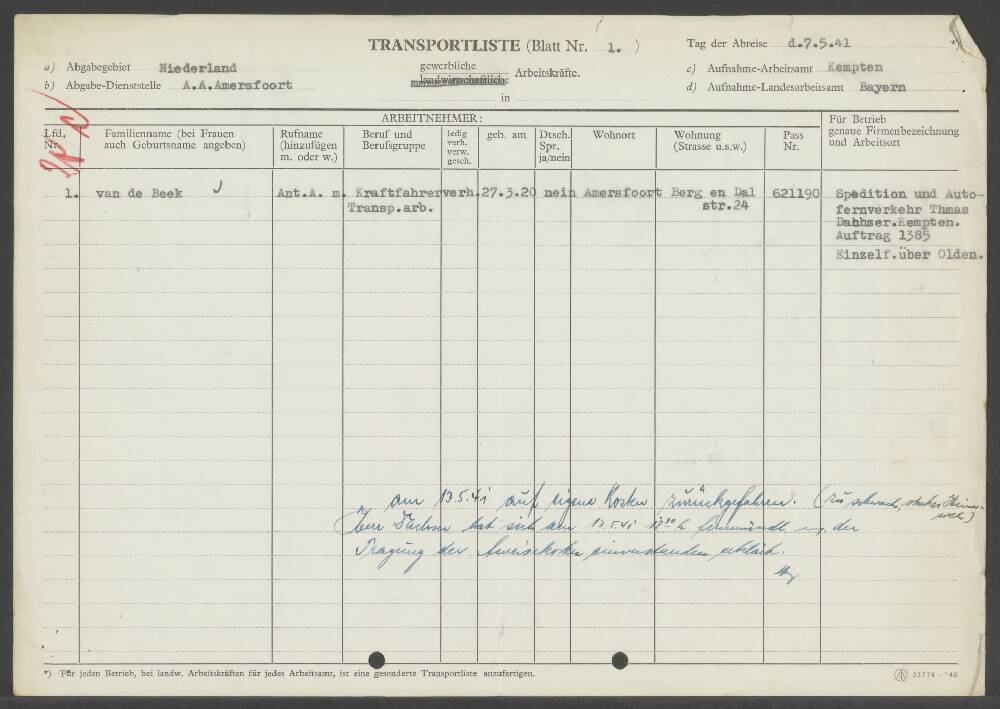 TRANSPORTLISTE (Blatt Nr. 1. )
Tag der Abreise d.7.5.41 *)
a) Abgabegebiet Niederland
gewerbliche
landwirtschaftliche Arbeitskräfte.
c) Aufnahme-Arbeitsamt Kempten
b) Abgabe-Dienststelle A.A.Amersfoort
in
d) Aufnahme-Landesarbeitsamt Bayern
ARBEITNEHMER:
Lfd. Nr.
Familienname (bei Frauen auch Geburtsname angeben)
Rufname (hinzufügen m. oder w.)
Beruf und Berufsgruppe
ledig verh. verw. gesch.
geb. am
Dtsch. Spr. ja/nein
Wohnort
Wohnung (Strasse u.s.w.)
Pass Nr.
Für Betrieb genaue Firmenbezeichnung und Arbeitsort
1. van de Beek Ant.A. m. Kraftfahrer verh. 27.3.20 nein Amersfoort Berg en Dal 621190 Spedition und Auto-
Transp.arb. str.24 fernverkehr Thmas
Dahhser.Kempten.
Auftrag 1385
Einzelf.über Olden.
am 13.5.41 auf eigene Kosten zurückgefahren. (zu schwach, starkes Heimweh)
Herr hat sich am 13.5.41 fernmündl. der
Tragung der einverstanden erklärt.
*) Für jeden Betrieb, bei landw. Arbeitskräften für jedes Arbeitsamt, ist eine gesonderte Transportliste anzufertigen.
22774 - '40